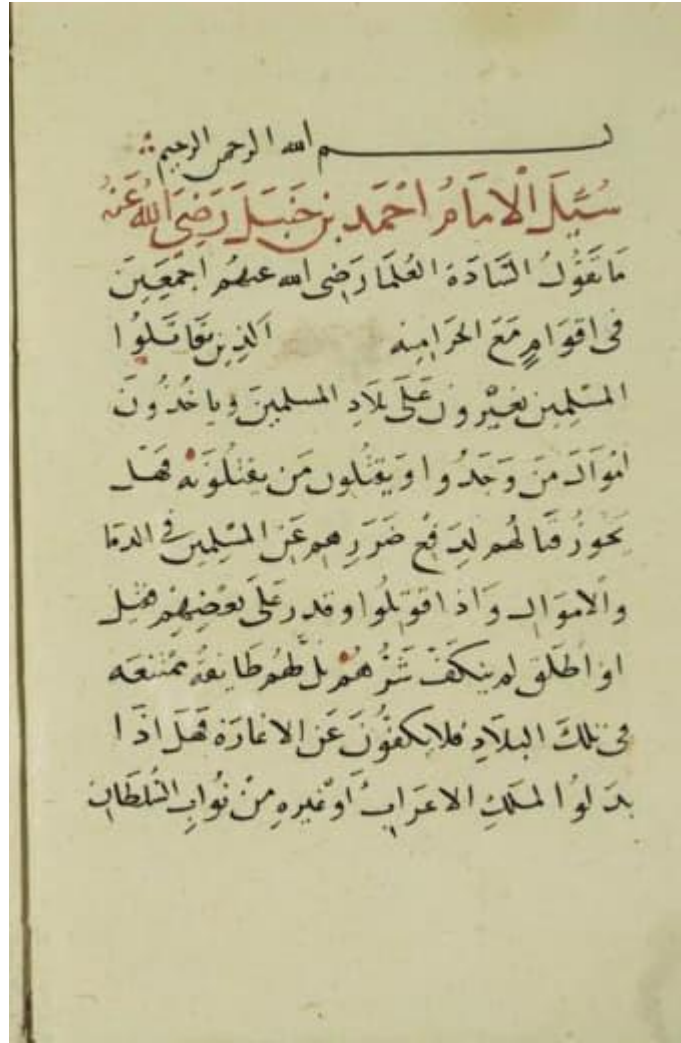 بسم الله الرحمن الرحيم
سُئِلَ الْامَامُ احْمَد بن حَنبَل رَضِيَ اللهُ عَنهُ
مَا تَقُولُ السَّادَة العُلمَا رَضى الله عنهُم اجمَعِينَ
فى اقوَامٍ مَعَ الحَرَاميه الَّذين يقَاتلُوا
المسْلِمين يغيْرون عَلَى بلَادِ المسلمينَ وياخُذُونَ
اموَالَ مَن وَجَدُوا وَيقتُلون مَن يقتُلونَه فهَل
يَجُوزُ قتالهُم لِدَفْع ضَرَرِهم عَن المسْلِمين فى الدمَا
والاموَال وَاذا قوتلُوا وقدر عَلَى بَعْضِهِم فقتل
او اطلَق لم ينكَفّ شَرُّهُمْ بَل لهُم طَايفةٌ ممتنعه
فى تلكَ البلَادِ فلا يكفّونَ عَن الاغارَة فهَل اذَا
بدَلوُا لملكِ الاعرَاب اَوْ غيرِهِ مِنْ نُوابِ السُّلطَان